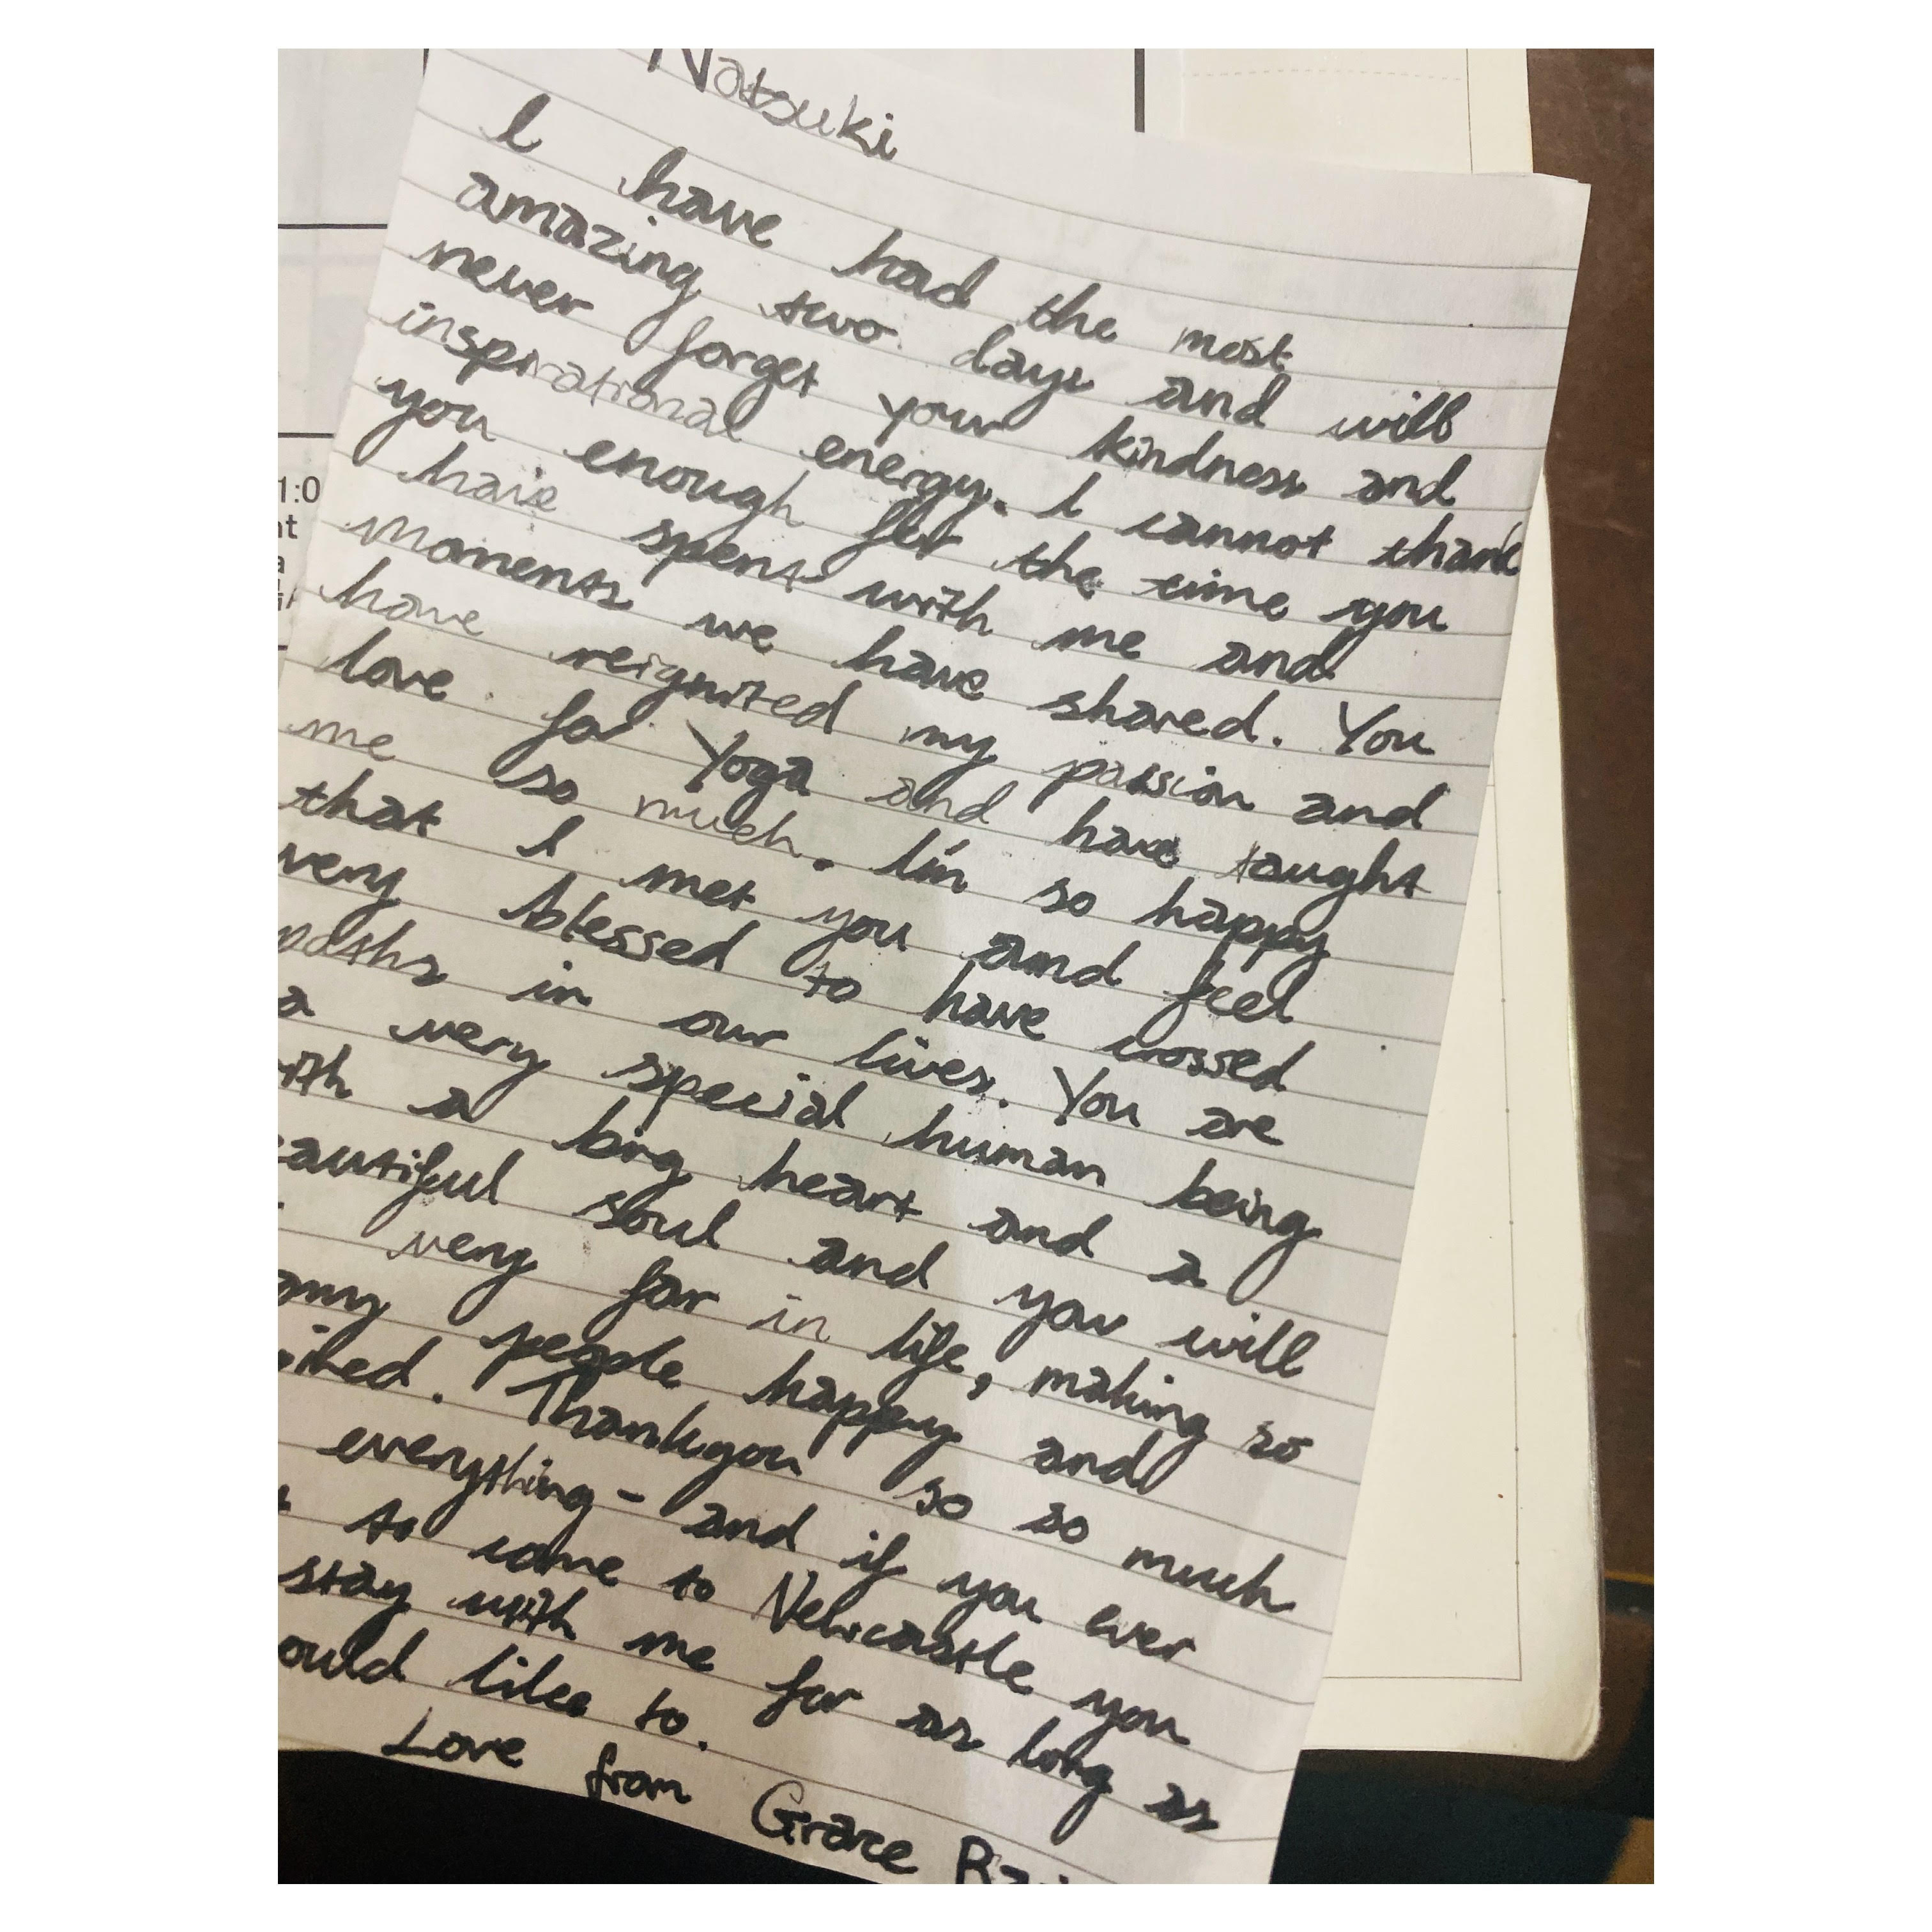 Natsuki
I have had the most
amazing two days and will
never forget your kindness and
inspirational energy. I cannot thank
you enough for the time you
have spent with me and
moments we have shared. You
have reignited my passion and
love for Yoga and have taught
me so much. I'm so happy
that I met you and feel
very blessed to have crossed
paths in our lives. You are
a very special human being
ith a big heart and a
eautiful soul and you will
very far in life, making so
any people happy and
ired. Thankyou so so much
everything - and if you ever
to come to Newcastle you
stay with me for as long as
ould like to.
Love from Grace
1:0
nt
a